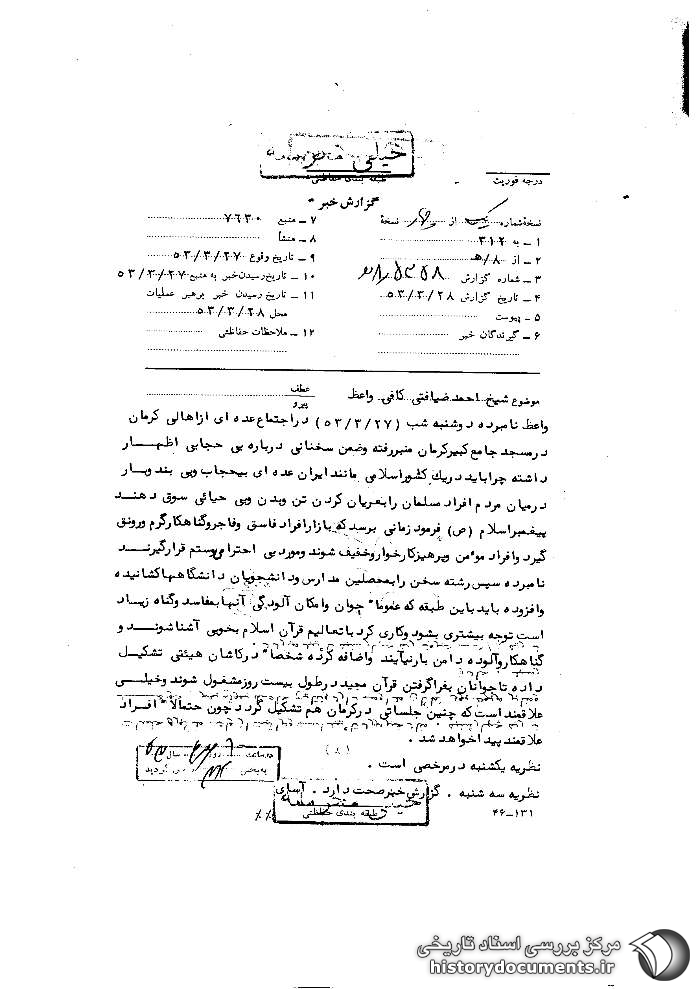 خیلی محرمانه
طبقه بندی حفاظتی
درجه فوریت
گزارش خبر
نسخه شماره یک از نسخه
۱ ـ به ۳۱۲
۲ ـ از ۸/هـ
۳ ـ شماره گزارش
۴ ـ تاریخ گزارش ۵۳/۳/۲۸
۵ ـ پیوست
۶ ـ گیرندگان خبر
۷ ـ منبع ۷۶۳۰
۸ ـ منشأ
۹ ـ تاریخ وقوع ۵۳/۳/۲۷
۱۰ ـ تاریخ رسیدن خبر به منبع ۵۳/۳/۲۷
۱۱ ـ تاریخ رسیدن خبر برهبر عملیات
محل ۵۳/۳/۲۸
۱۲ ـ ملاحظات حفاظتی
موضوع شیخ احمد ضیافتی کافی واعظ
عطف
پیرو
واعظ نامبرده دوشنبه شب (۵۳/۳/۲۷) در اجتماع عده ای از اهالی کرمان
در مسجد جامع کبیر کرمان منبر رفته وضمن سخنانی درباره بی حجابی اظهار
داشته چرا باید در یک کشور اسلامی مانند ایران عده ای بیحجاب وبی بند وبار
در میان مردم افراد مسلمان را بعریان کردن تن وبدن وبی حیائی سوق دهند
پیغمبر اسلام (ص) فرمود زمانی برسد که بازار افراد فاسق وفاجر وگناهکار گرم ورونق
گیرد وافراد موءمن وپرهیزکار خوار وخفیف شوند ومورد بی احترامی وستم قرار گیرند
نامبرده سپس رشته سخن را بمحصلین مدارس ودانشجویان دانشگاهها کشانیده
وافزوده باید باین طبقه که عموما" جوان وامکان آلودگی آنها بمفاسد وگناه زیاد
است توجه بیشتری بشود وکاری کرد با تعالیم قرآن اسلام بخوبی آشنا شوند و
گناهکار وآلوده دامن بار نیآیند واضافه کرده شخصا" در کاشان هیئتی تشکیل
داده تا جوانان بفرا گرفتن قرآن مجید در طول بیست روز مشغول شوند وخیلی
علاقمند است که چنین جلساتی در کرمان هم تشکیل گردد چون احتمالا" افراد
علاقمند پیدا خواهد شد .
نظریه یکشنبه در مرخصی است .
نظریه سه شنبه . گزارش خبر صحت دارد . آسای
در ساعت روز سال
به بخش گردید
خیلی محرمانه
طبقه بندی حفاظتی
۱۳۱ـ۴۶
مرکز بررسی اسناد تاریخی
historydocuments.ir